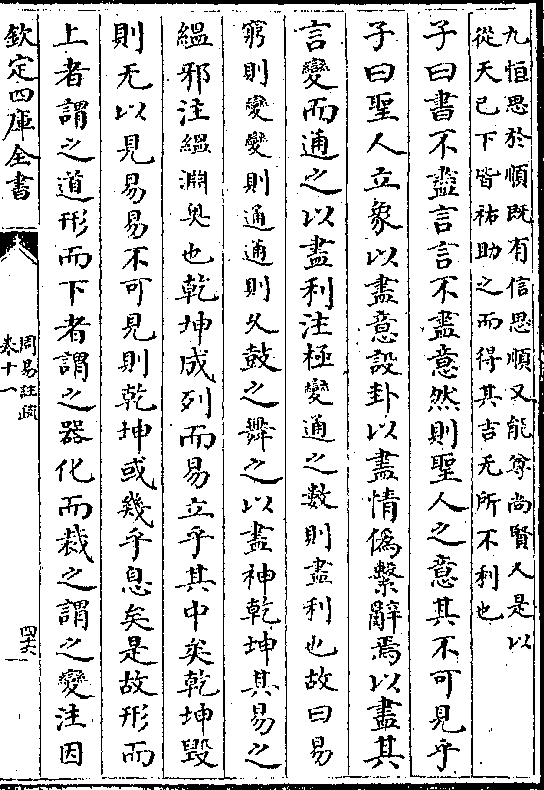 九恒思於順既有信思順又能尊尚賢人是以
從天已下皆祐助之而得其吉无所不利也
子曰書不盡言言不盡意然則聖人之意其不可見乎
子曰聖人立象以盡意設卦以盡情僞繫辭焉以盡其
言變而通之以盡利注極變通之數則盡利也故曰易
窮則變變則通通則久鼓之舞之以盡神乾坤其易之
緼邪注緼淵奥也乾坤成列而易立乎其中矣乾坤毁
則无以見易易不可見則乾坤或幾乎息矣是故形而
上者謂之道形而下者謂之器化而裁之謂之變注因
欽定四庫全書
周易註疏
卷十一
四六